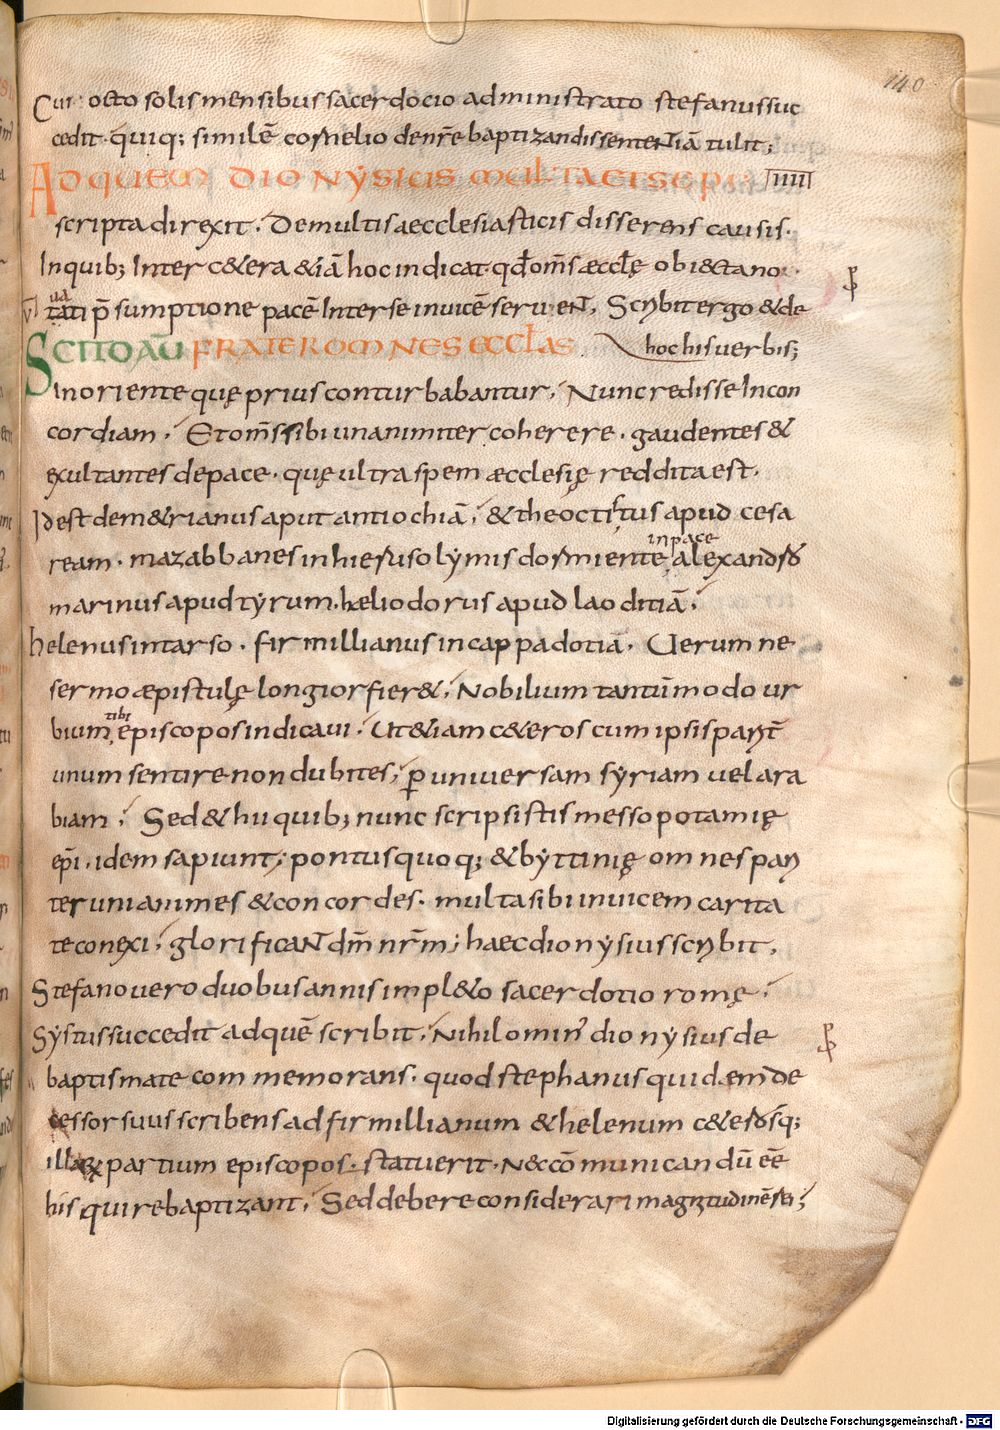 140
Cui · octo solis mensibus sacerdocio administrato stefanus suc
cedit · quiq; similē cornelio de nr̄e baptizandis sententiā tulit;
AD QUEM DIONYSIUS MULTA ET SEPE IIII
scripta direxit. De multis aecclesiasticis disserens causis.
In quib; Inter cetera &iā hoc indicat · qd̄ oms̄ æccłę ob iectano
VI uatati p̄sumptione pacē Inter se inuicē seruent, Scribit ergo &de
SCITO AŪ FRATER OMNES ECCLAS hoc his uerbis;
In oriente quę prius conturbabantur, Nunc redisse In con
cordiam, Et om̄s sibi unanimiter coherere. gaudentes &
exultantes de pace. quę ultra spem æcclesię reddita est.
Id est dem&rianus aput antiochiā, & theoctistus apud cesa
ream. mazabbanes in hierusolymis dormiente in pace alexandro
marinus apud tyrum. hæliodorus apud laoditiā,
helenus in tarso. firmillianus in cappadotiā. Uerum ne
sermo æpistulę longior fier&, Nobilium tantūmodo ur
bium tibi episcopos indicaui. Ut&iam c&eros cum ipsis parit̄
unum sentire non dubites, ꝑ uniuersam syriam uel ara
biam, Sed & hii quib; nunc scripsistis messopotamię
ep̄i, idem sapiunt, pontus quoq; & byttinię omnes pari
ter unianimes & concordes. multa sibi inuicem carita
te conexi, glorificant dm̄ nr̄m; haec dionysius scribit,
Stefano uero duobus annis impl&o sacerdotio romę,
Systus succedit ad quē scribit, Nihilomin' dionysius de
baptismate commemorans. quod stephanus quidem de
cessor suus scribens ad firmillianum & helenum c&erosq;
illarꝝ partium episcopos. statuerit. N& cōmunicandū eē
his qui rebaptizant, Sed debere considerari magnitudinē rei;
Digitalisierung gefördert durch die Deutsche Forschungsgemeinschaft - DFG